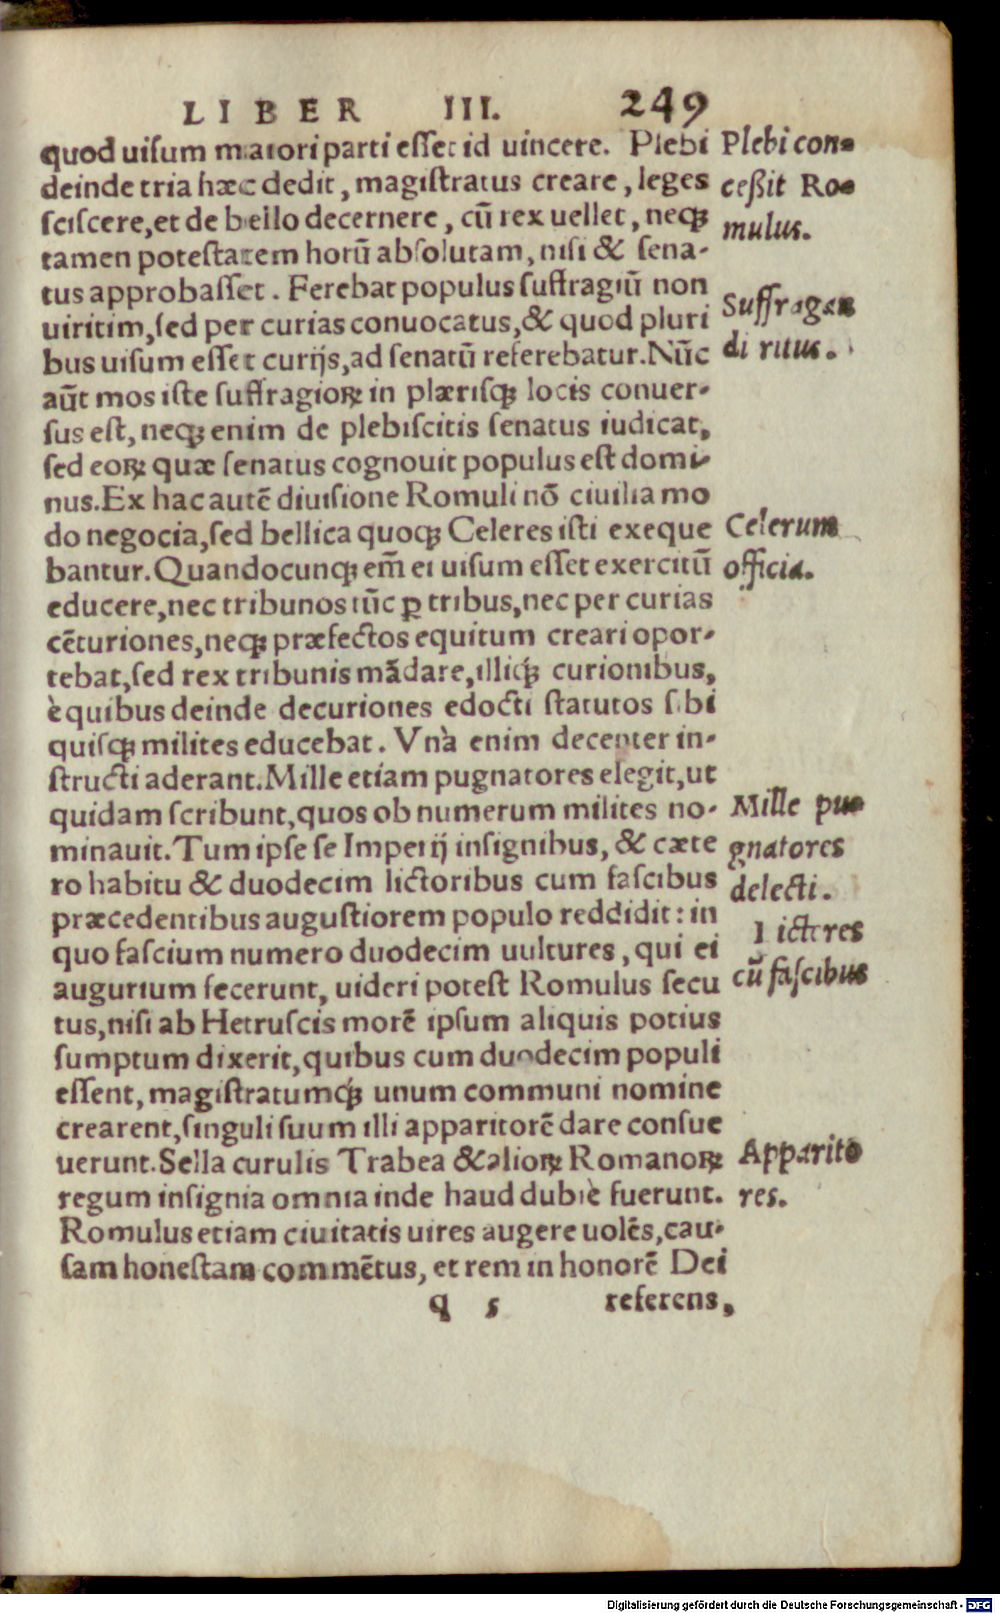 LIBER III. 249
quod uiſum maiori parti eſſet id uincere. Plebi
deinde tria hæc dedit, magiſtratus creare, leges
ſciſcere, et de bello decernere, cũ rex uellet, neqꝫ
tamen poteſtatem horũ abſolutam, niſi & ſena-
tus approbaſſet. Ferebat populus ſuffragiũ non
uiritim, ſed per curias conuocatus, & quod pluri
bus uiſum eſſet curijs, ad ſenatũ referebatur. Nũc
aũt mos iſte ſuffragioꝝ in plæriſqꝫ locis conuer-
ſus eſt, neqꝫ enim de plebiſcitis ſenatus iudicat,
ſed eoꝝ quæ ſenatus cognouit populus eſt domi-
nus. Ex hac autẽ diuiſione Romuli nõ ciuilia mo
do negocia, ſed bellica quoqꝫ Celeres iſti exeque
bantur. Quandocunqꝫ em̃ ei uiſum eſſet exercitũ
educere, nec tribunos tũc ꝑ tribus, nec per curias
cẽturiones, neqꝫ præfectos equitum creari opor-
tebat, ſed rex tribunis mãdare, illiqꝫ́ curionibus,
è quibus deinde decuriones edocti ſtatutos ſibi
quiſqꝫ milites educebat. Vnà enim decenter in-
ſtructi aderant. Mille etiam pugnatores elegit, ut
quidam ſcribunt, quos ob numerum milites no-
minauit. Tum ipſe ſe Imperij inſignibus, & cæte
ro habitu & duodecim lictoribus cum faſcibus
præcedentibus auguſtiorem populo reddidit: in
quo faſcium numero duodecim uultures, qui ei
augurium fecerunt, uideri poteſt Romulus ſecu
tus, niſi ab Hetruſcis morẽ ipſum aliquis potius
ſumptum dixerit, quibus cum duodecim populi
eſſent, magiſtratumqꝫ́ unum communi nomine
crearent, ſinguli ſuum illi apparitorẽ dare conſue
uerunt. Sella curulis Trabea & alioꝝ Romanoꝝ
regum inſignia omnia inde haud dubiè fuerunt.
Romulus etiam ciuitatis uires augere uolẽs, cau-
ſam honeſtam commẽtus, et rem in honorẽ Dei
q 5 referens,
Plebi con-
ceßit Ro-
mulus.
Suffragan
di ritus.
Celerum
officia.
Mille pu-
gnatores
delecti.
Lictores
cũ faſcibus
Apparito
res.
Digitalisierung gefördert durch die Deutsche Forschungsgemeinschaft - DFG